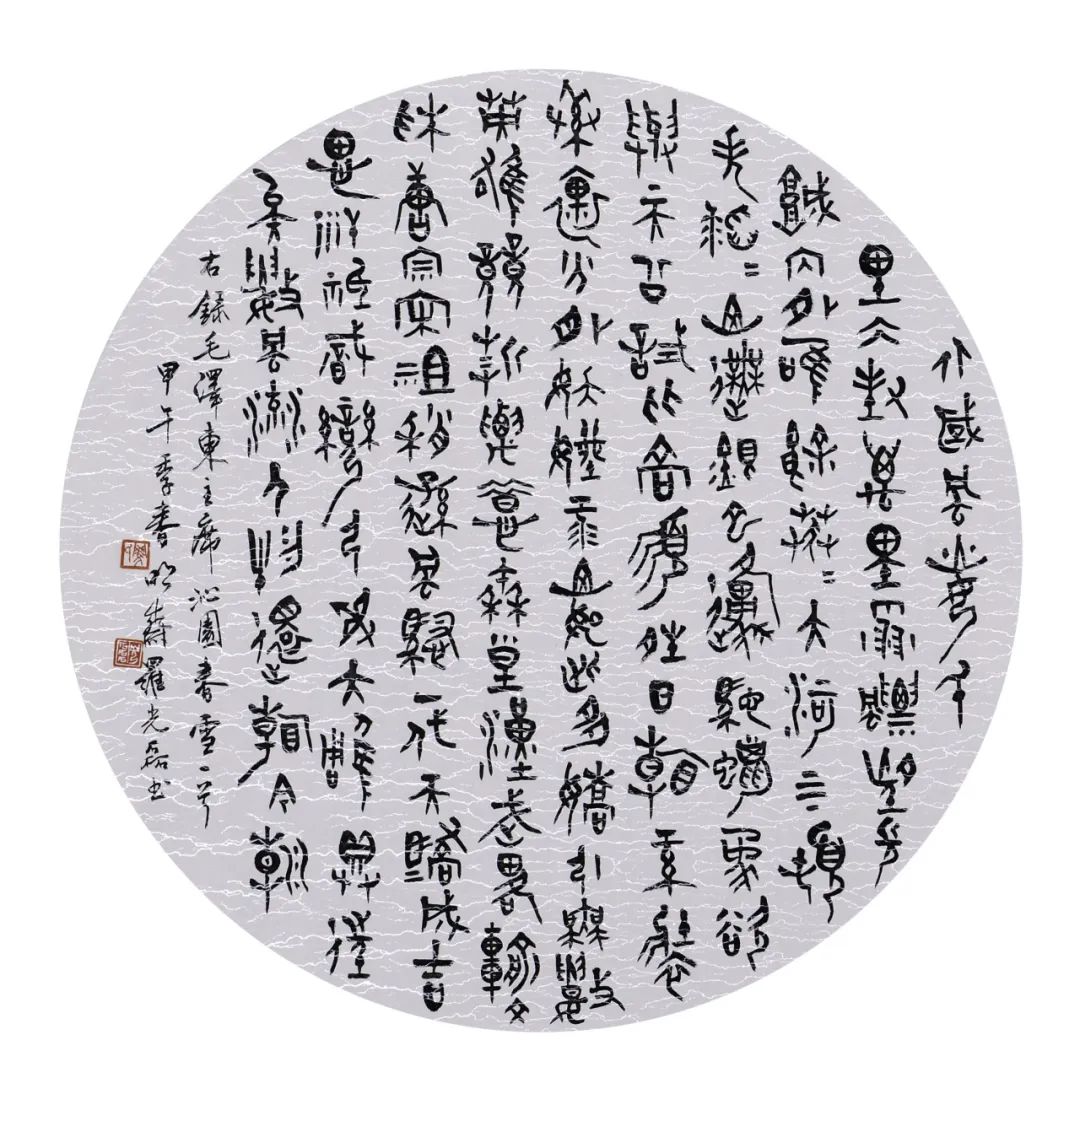 北國風光千
里冰封萬里雪飄望長
城内外唯餘莽〻大河上下頓
失滔〻山舞銀蛇原馳蠟象欲
與天公試比高須晴日看紅裝
素裹分外妖嬈江山如此多嬌引無數
英雄競折腰惜秦皇漢武略輸文
采唐宗宋祖稍遜風騷一代天驕成吉
思汗祗識彎弓射大雕俱往
矣數風流人物還看今朝
右錄毛澤東主席沁園春雪一首
甲午季春羅光磊書